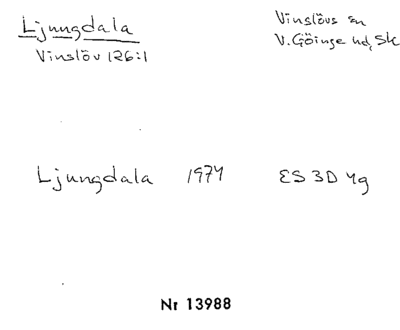 Ljungdala
Vinslöv 126:1
Vinslövs sn
V. Göinge hd, Sk
Ljungdala 1974 ES 3D 4g
Nr 13988